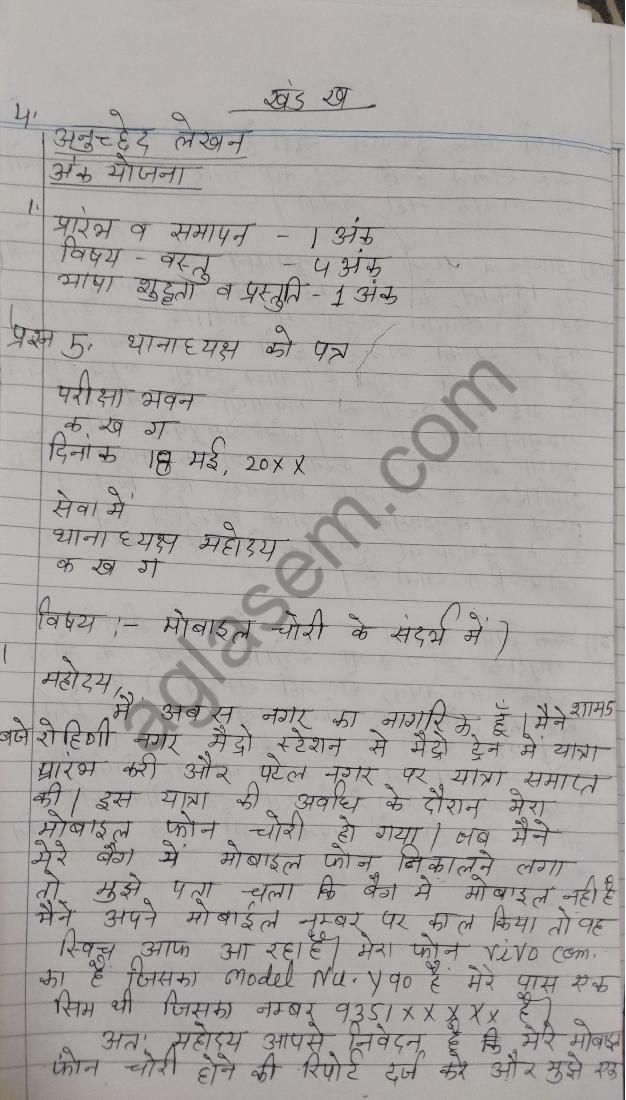 खंड ख
4.
अनुच्छेद लेखन
अंक योजना
1.
प्रारंभ व समापन - 1 अंक
विषय - वस्तु - 4 अंक
भाषा शुद्धता व प्रस्तुति - 1 अंक
प्रश्न 5. थानाध्यक्ष को पत्र
परीक्षा भवन
क ख ग
दिनांक 18 मई, 20xx
सेवा में
थानाध्यक्ष महोदय
क ख ग
विषय :- मोबाइल चोरी के संदर्भ में)
महोदय,
मैं अबस नगर का नागरिक हूँ। मैने शाम 5
बजे रोहिणी नगर मैट्रो स्टेशन से मैट्रो ट्रेन में यात्रा
प्रारंभ करी और पटेल नगर पर यात्रा समाप्त
की। इस यात्रा की अवधि के दौरान मेरा
मोबाइल फोन चोरी हो गया। जब मैने
मेरे बैग में मोबाइल फोन निकालने लगा
तो मुझे पता चला कि बैग में मोबाइल नही है
मैने अपने मोबाईल नम्बर पर काल किया तो वह
स्विच आफ आ रहा है। मेरा फोन vivo com.
का है जिसका model Nu. Y90 है मेरे पास एक
सिम थी जिसका नम्बर 9351xxxxxx है)
अतः महोदय आपसे निवेदन है कि मेरे मोबाइल
फोन चोरी होने की रिपोर्ट दर्ज करे और मुझे एक
aglasem.com